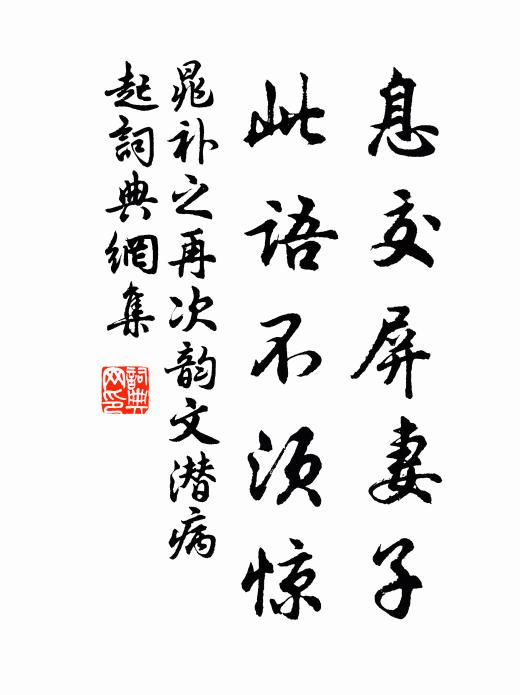 息交屏妻子
此语不须惊
晁补之再次韵文潜病
起詞典網集
詞典
网印